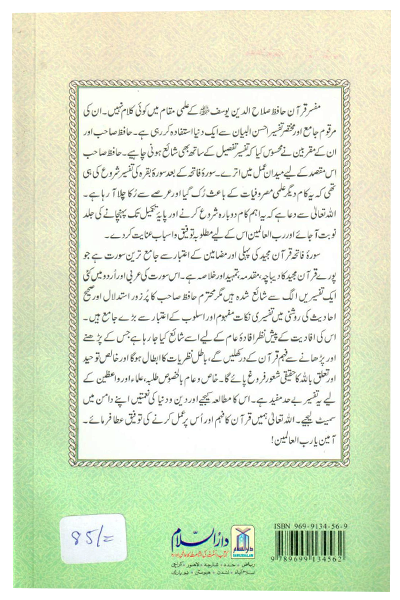 مفسر قرآن حافظ صلاح الدین یوسف ﷾ کے علمی مقام میں کوئی کلام نہیں۔ ان کی
مرقوم جامع اور مختصر تفسیر احسن البیان سے ایک دنیا استفادہ کر رہی ہے۔ حافظ صاحب اور
ان کے مقربین نے محسوس کیا کہ تفسیر تفصیل کے ساتھ بھی شائع ہونی چاہیے۔ حافظ صاحب
اس مقصد کے لیے میدانِ عمل میں اترے۔ سورۂ فاتحہ کے بعد سورۂ بقرہ کی تفسیر شروع کی ہی
تھی کہ یہ کام دیگر علمی مصروفیات کے باعث رُک گیا اور عرصے سے رُکا چلا آ رہا ہے۔
اللہ تعالیٰ سے دعا ہے کہ یہ اہم کام دوبارہ شروع کرنے اور پایۂ تکمیل تک پہنچانے کی جلد
نوبت آ جائے اور رب العالمین اس کے لیے مطلوبہ توفیق و اسباب عنایت کر دے۔
سورۂ فاتحہ قرآن مجید کی پہلی اور مضامین کے اعتبار سے جامع ترین سورت ہے جو
پورے قرآن مجید کا دیباچہ، مقدمہ، تمہید اور خلاصہ ہے۔ اس سورت کی عربی اور اُردو میں کئی
ایک تفسیریں الگ سے شائع شدہ ہیں مگر محترم حافظ صاحب کا پُرزور استدلال اور صحیح
احادیث کی روشنی میں تفسیری نکات مفہوم اور اسلوب کے اعتبار سے بڑے جامع ہیں۔
اس کی افادیت کے پیش نظر افادۂ عام کے لیے اسے شائع کیا جا رہا ہے جس کے پڑھنے
اور پڑھانے سے فہم قرآن کے در کھلیں گے، باطل نظریات کا ابطال ہوگا اور خالص توحید
اور تعلق باللہ کا حقیقی شعور فروغ پائے گا۔ خاص و عام بالخصوص طلبہ، علماء اور واعظین کے
لیے یہ تفسیر بے حد مفید ہے۔ اس کا مطالعہ کیجیے اور دین و دنیا کی نعمتیں اپنے دامن میں
سمیٹ لیجیے۔ اللہ تعالیٰ ہمیں قرآن کا فہم اور اُس پر عمل کرنے کی توفیق عطا فرمائے۔
آمین یا رب العالمین!
85/=
دارالسلام
DARUSSALAM
ISBN 969-9134-56-9
9 789699 134562